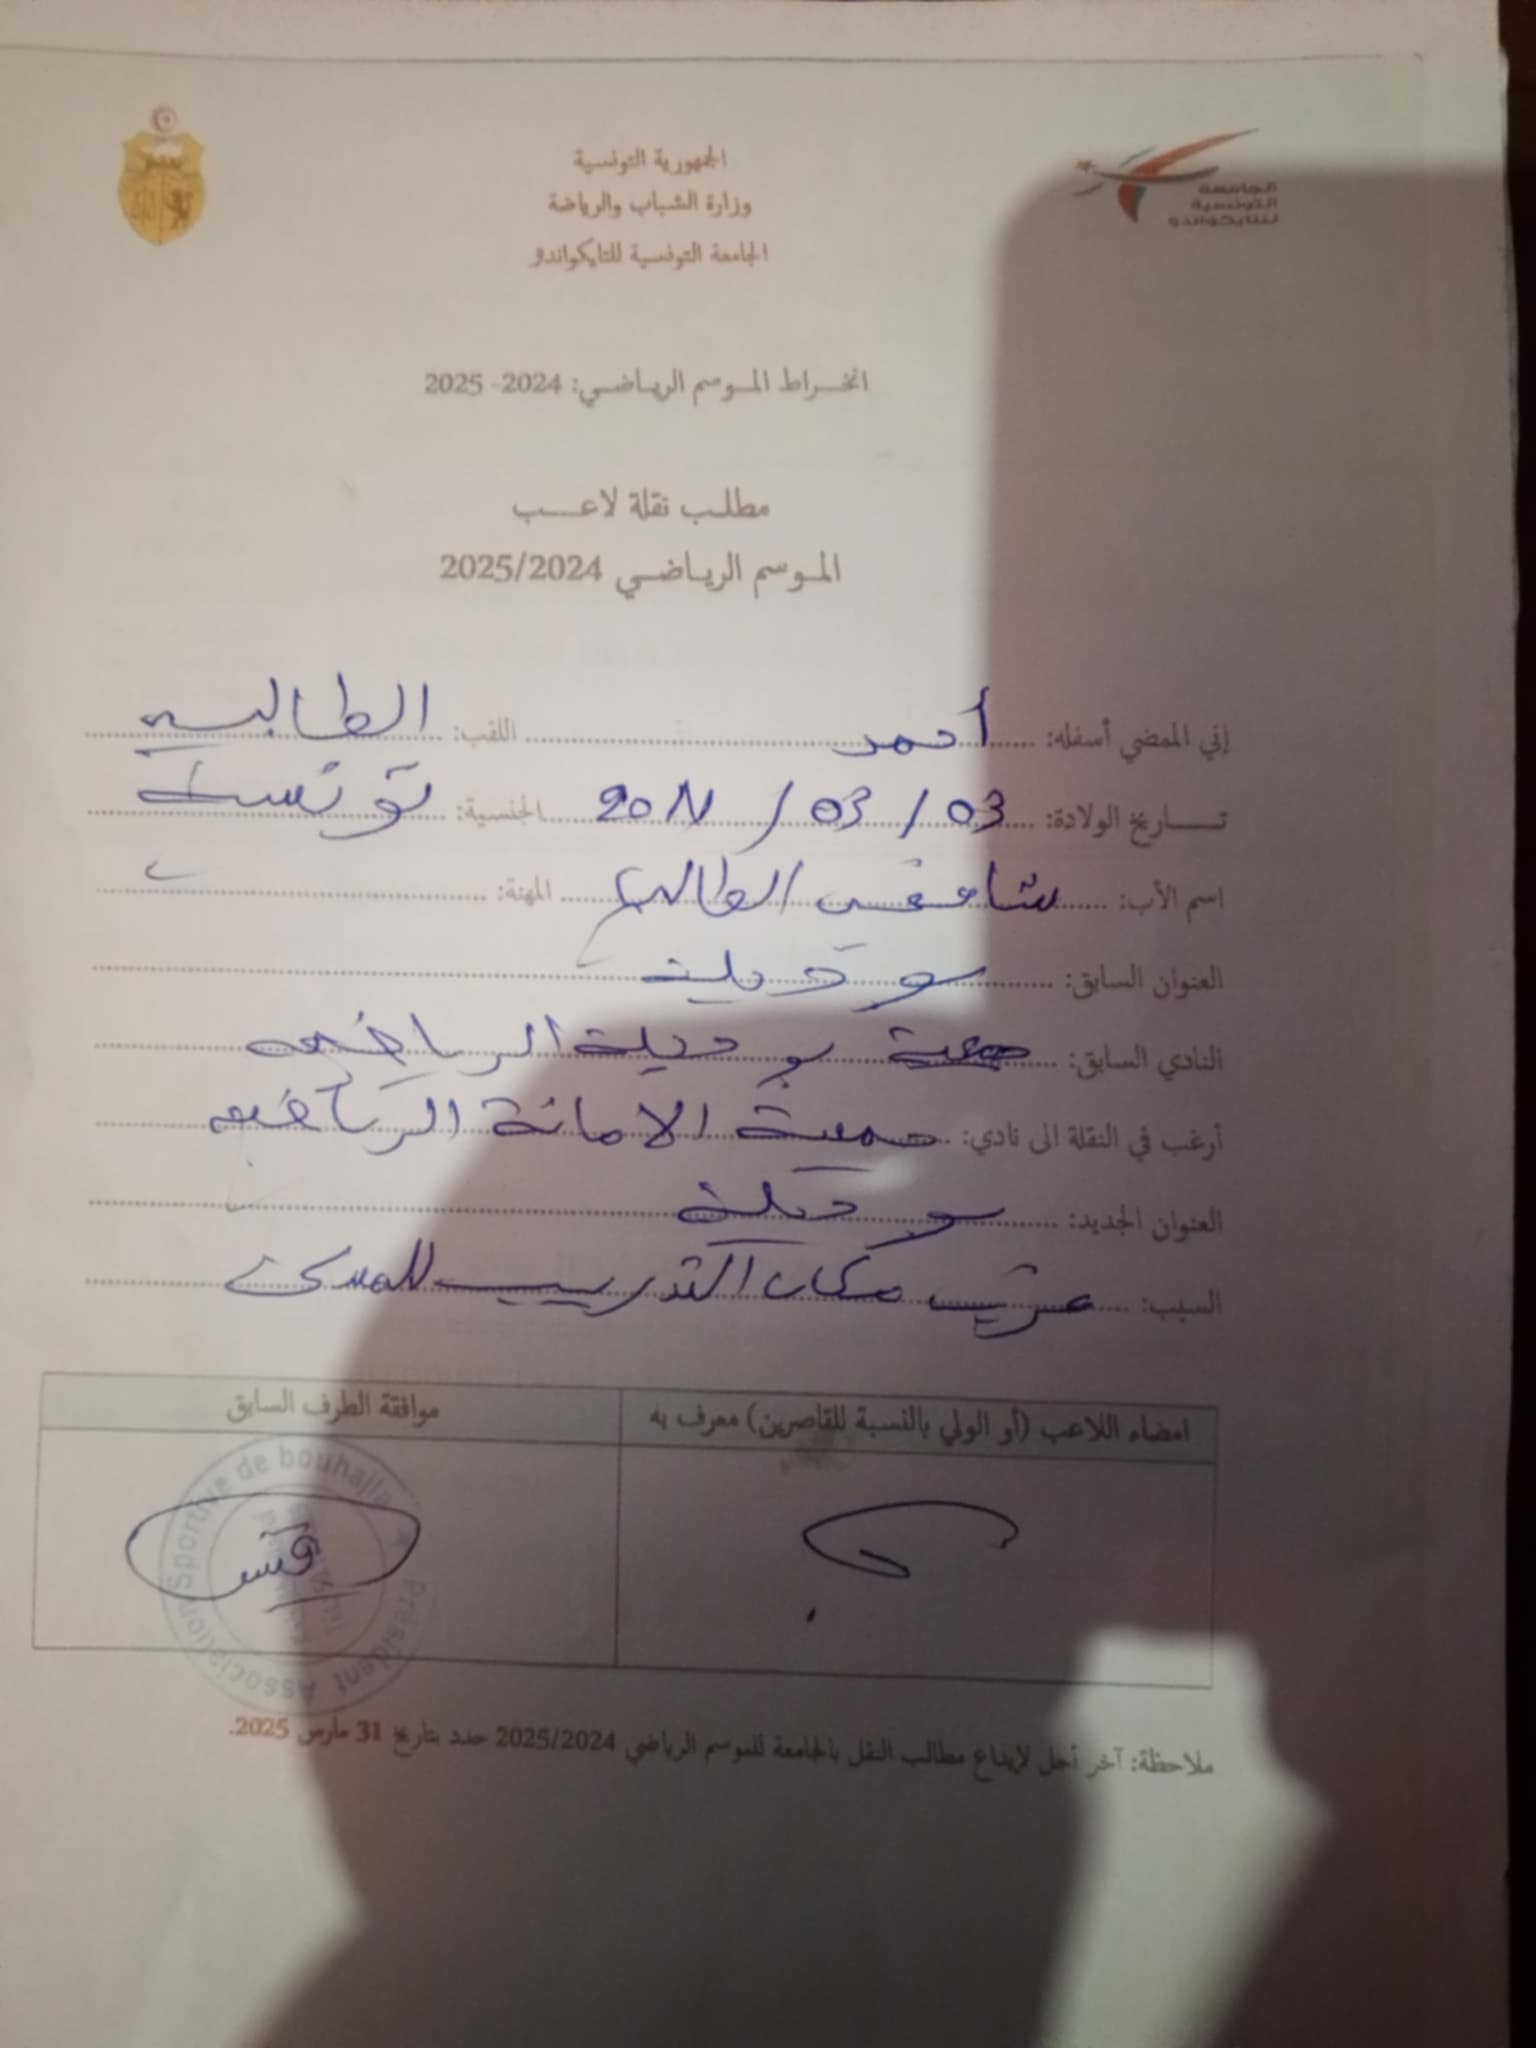 الجمهورية التونسية
وزارة الشباب والرياضة
الجامعة التونسية للتايكواندو
الجامعة
التونسية
للتايكواندو
انخراط الموسم الرياضي: 2024- 2025
مطلب نقلة لاعب
الموسم الرياضي 2025/2024
إني الممضي أسفله: أحمد اللقب: الطالبي
تاريخ الولادة: 03 / 03 / الجنسية:
اسم الأب: الطالبي المهنة:
العنوان السابق:
النادي السابق: الرياضية
أرغب في النقلة الى نادي: جمعية الامانة الرياضية
العنوان الجديد:
السبب: مكان التدريب للمسكن
امضاء اللاعب (أو الولي بالنسبة للقاصرين) معرف به
موافقة الطرف السابق
Association Sportive de bouhajla
Président
ملاحظة: آخر أجل لإيداع مطالب النقل بالجامعة للموسم الرياضي 2025/2024 حدد بتاريخ 31 مارس 2025.